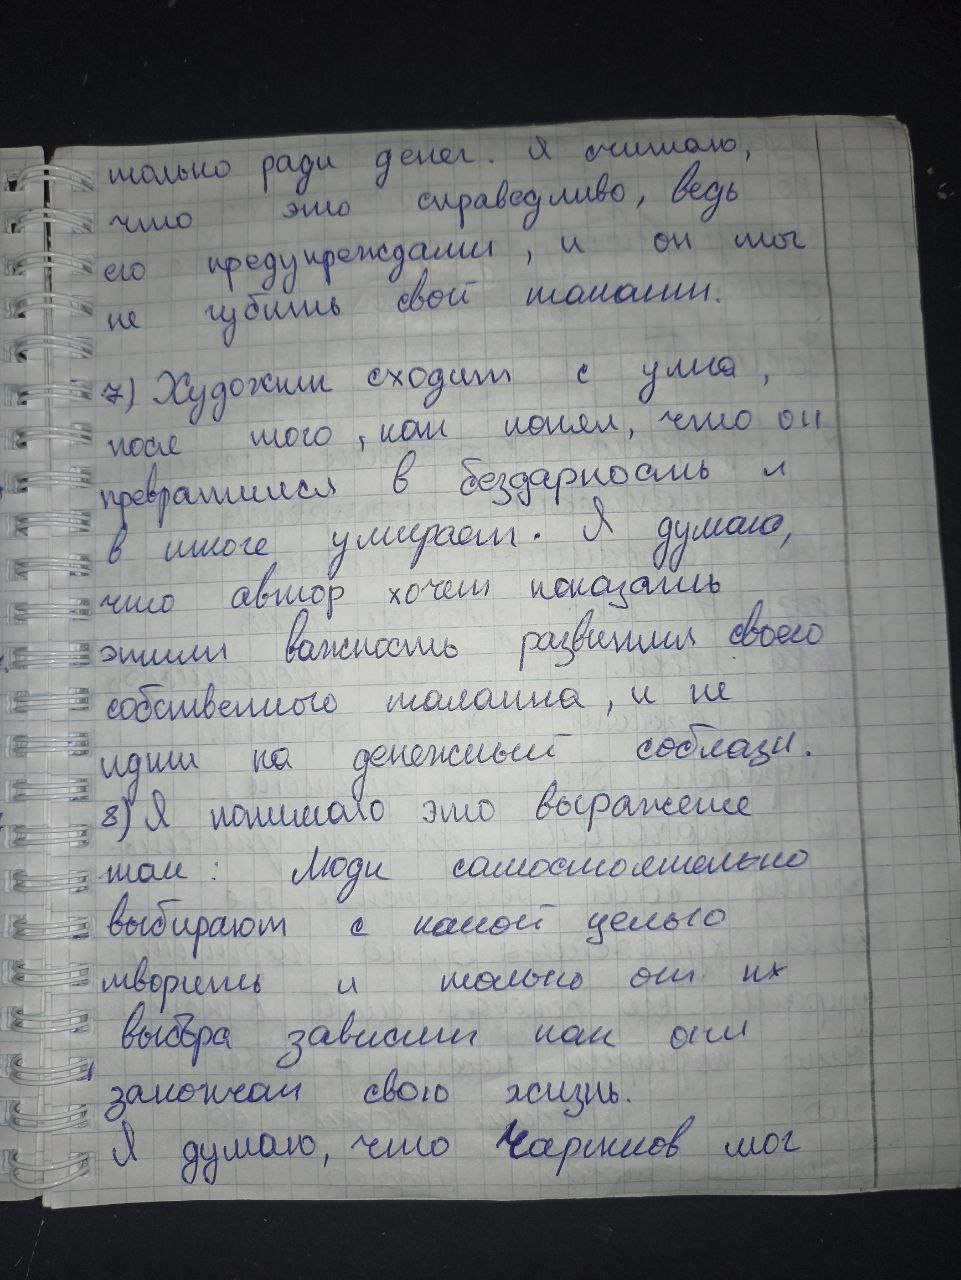 только ради денег. Я считаю,
что это справедливо, ведь
его предупреждали, и он мог
не губить свой талант.
7) Художник сходит с ума,
после того, как понял, что он
превратился в бездарность и
в итоге умирает. Я думаю,
что автор хочет показать
этим важность развития своего
собственного таланта, и не
идти на денежный соблазн.
8) Я понимаю это выражение
так: Люди самостоятельно
выбирают с какой целью
творить и только от их
выбора зависит как они
закончат свою жизнь.
Я думаю, что Чартков мог